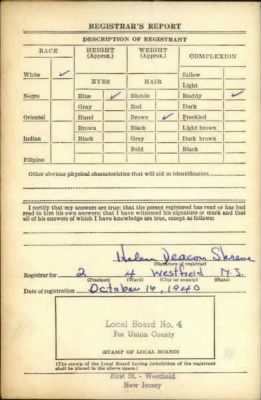 REGISTRAR'S REPORT
DESCRIPTION OF REGISTRANT
RACE HEIGHT (Approx.) WEIGHT (Approx.) COMPLEXION
White ✓ Sallow
EYES HAIR Light
Negro Blue ✓ Blonde Ruddy ✓
Gray Red Dark
Oriental Hazel Brown ✓ Freckled
Brown Black Light brown
Indian Black Gray Dark brown
Bald Black
Filipino
Other obvious physical characteristics that will aid in identification
I certify that my answers are true; that the person registered has read or has
read to him his own answers; that I have witnessed his signature or mark and that
all of his answers of which I have knowledge are true, except as follows:
Helen Deacon
(Signature of registrar)
Registrar for 2 4 Westfield N.J.
(Precinct) (Ward) (City or County) (State)
Date of registration October 16, 1940
Local Board No. 4
For Union County
(STAMP OF LOCAL BOARD)
(The stamp of the Local Board having jurisdiction of the registrant
shall be placed in the above space.)
First St. - Westfield
New Jersey